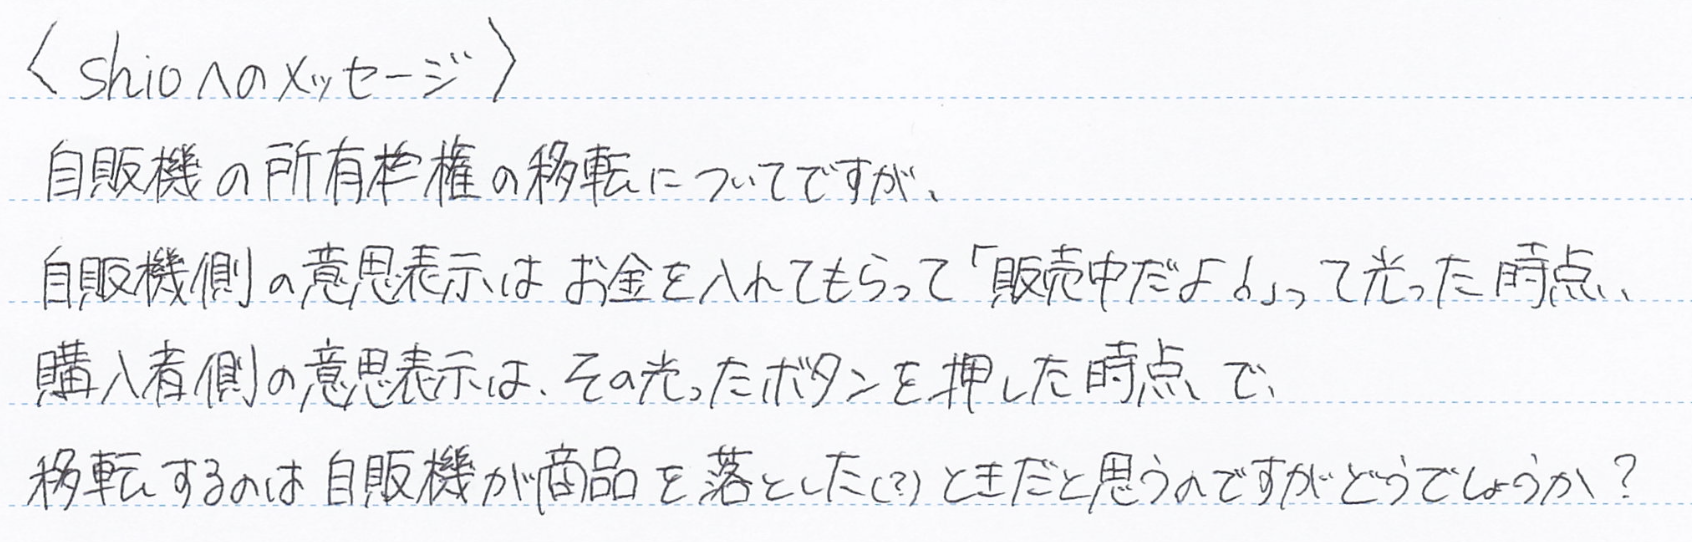 〈shioへのメッセージ〉
自販機の所有権の移転についてですが、
自販機側の意思表示はお金を入れてもらって「販売中だよ!」って光った時点、
購入者側の意思表示は、その光ったボタンを押した時点で、
移転するのは自販機が商品を落とした(?)ときだと思うのですがどうでしょうか?